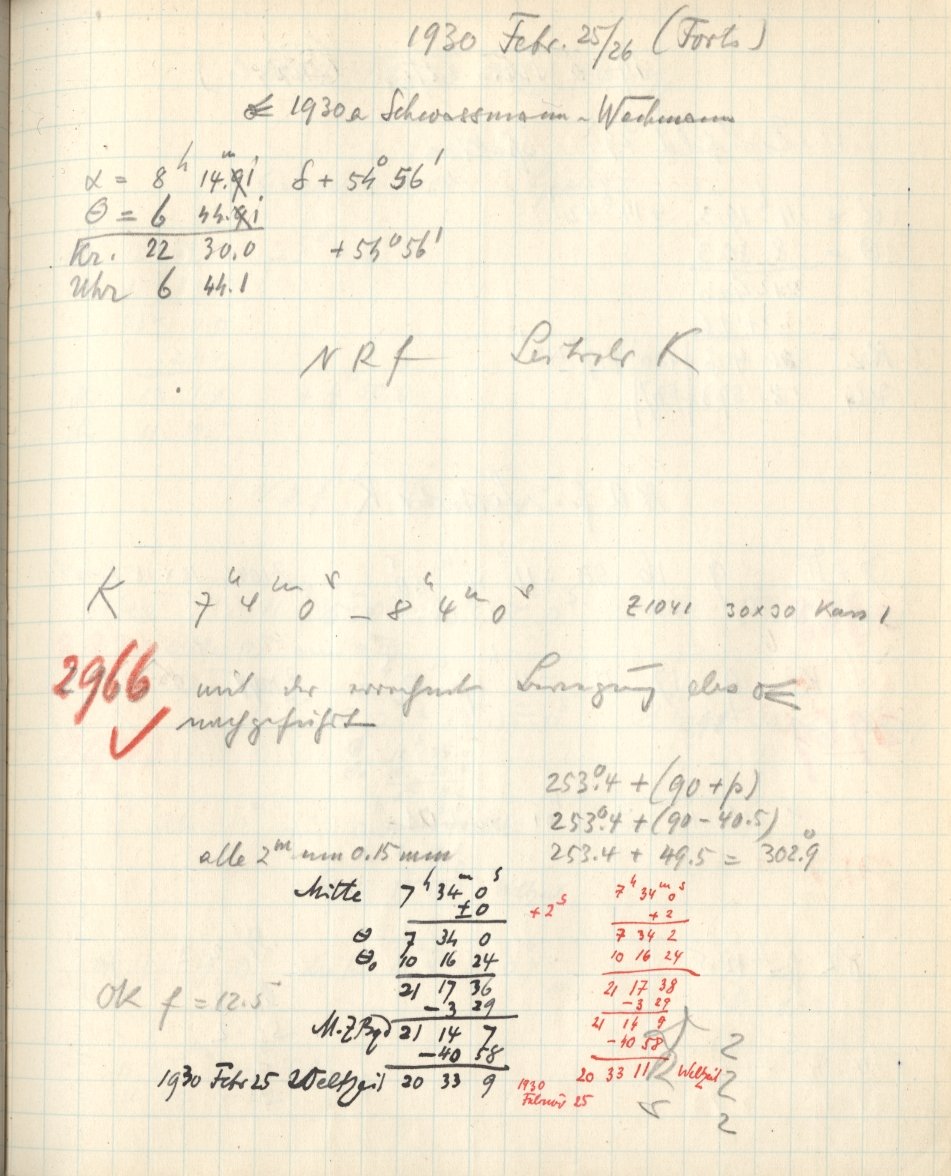 1930 Febr. 25/26 (Forts)
☄ 1930a Schwassmann-Wachmann
α = 8ʰ 14.ᵐ1 δ + 54° 56'
θ = 6 44.1
Kr. 22 30.0 + 54° 56'
Uhr 6 44.1
N R f Leitrohr K
K 7ʰ 4ᵐ 0ˢ – 8ʰ 4ᵐ 0ˢ Z1041 30x30 Kass 1
2966 mit der errechnet Bewegung des ☄
✓ nachgeführt
253°.4 + (90 + p)
253°.4 + (90 - 40.5)
alle 2ᵐ um 0.15 mm 253.4 + 49.5 = 302°.9
Mitte 7ʰ 34ᵐ 0ˢ 7ʰ 34ᵐ 0ˢ
±0 +2ˢ +2
θ 7 34 0 7 34 2
θ₀ 10 16 24 10 16 24
21 17 36 21 17 38
OK f = 12.5 -3 29 -3 29
M.Z Bgd 21 14 7 21 14 9
-40 58 -40 58 2
1930 Febr 25 Weltzeit 20 33 9 1930 Februar 25 20 33 11 Weltzeit 2
2